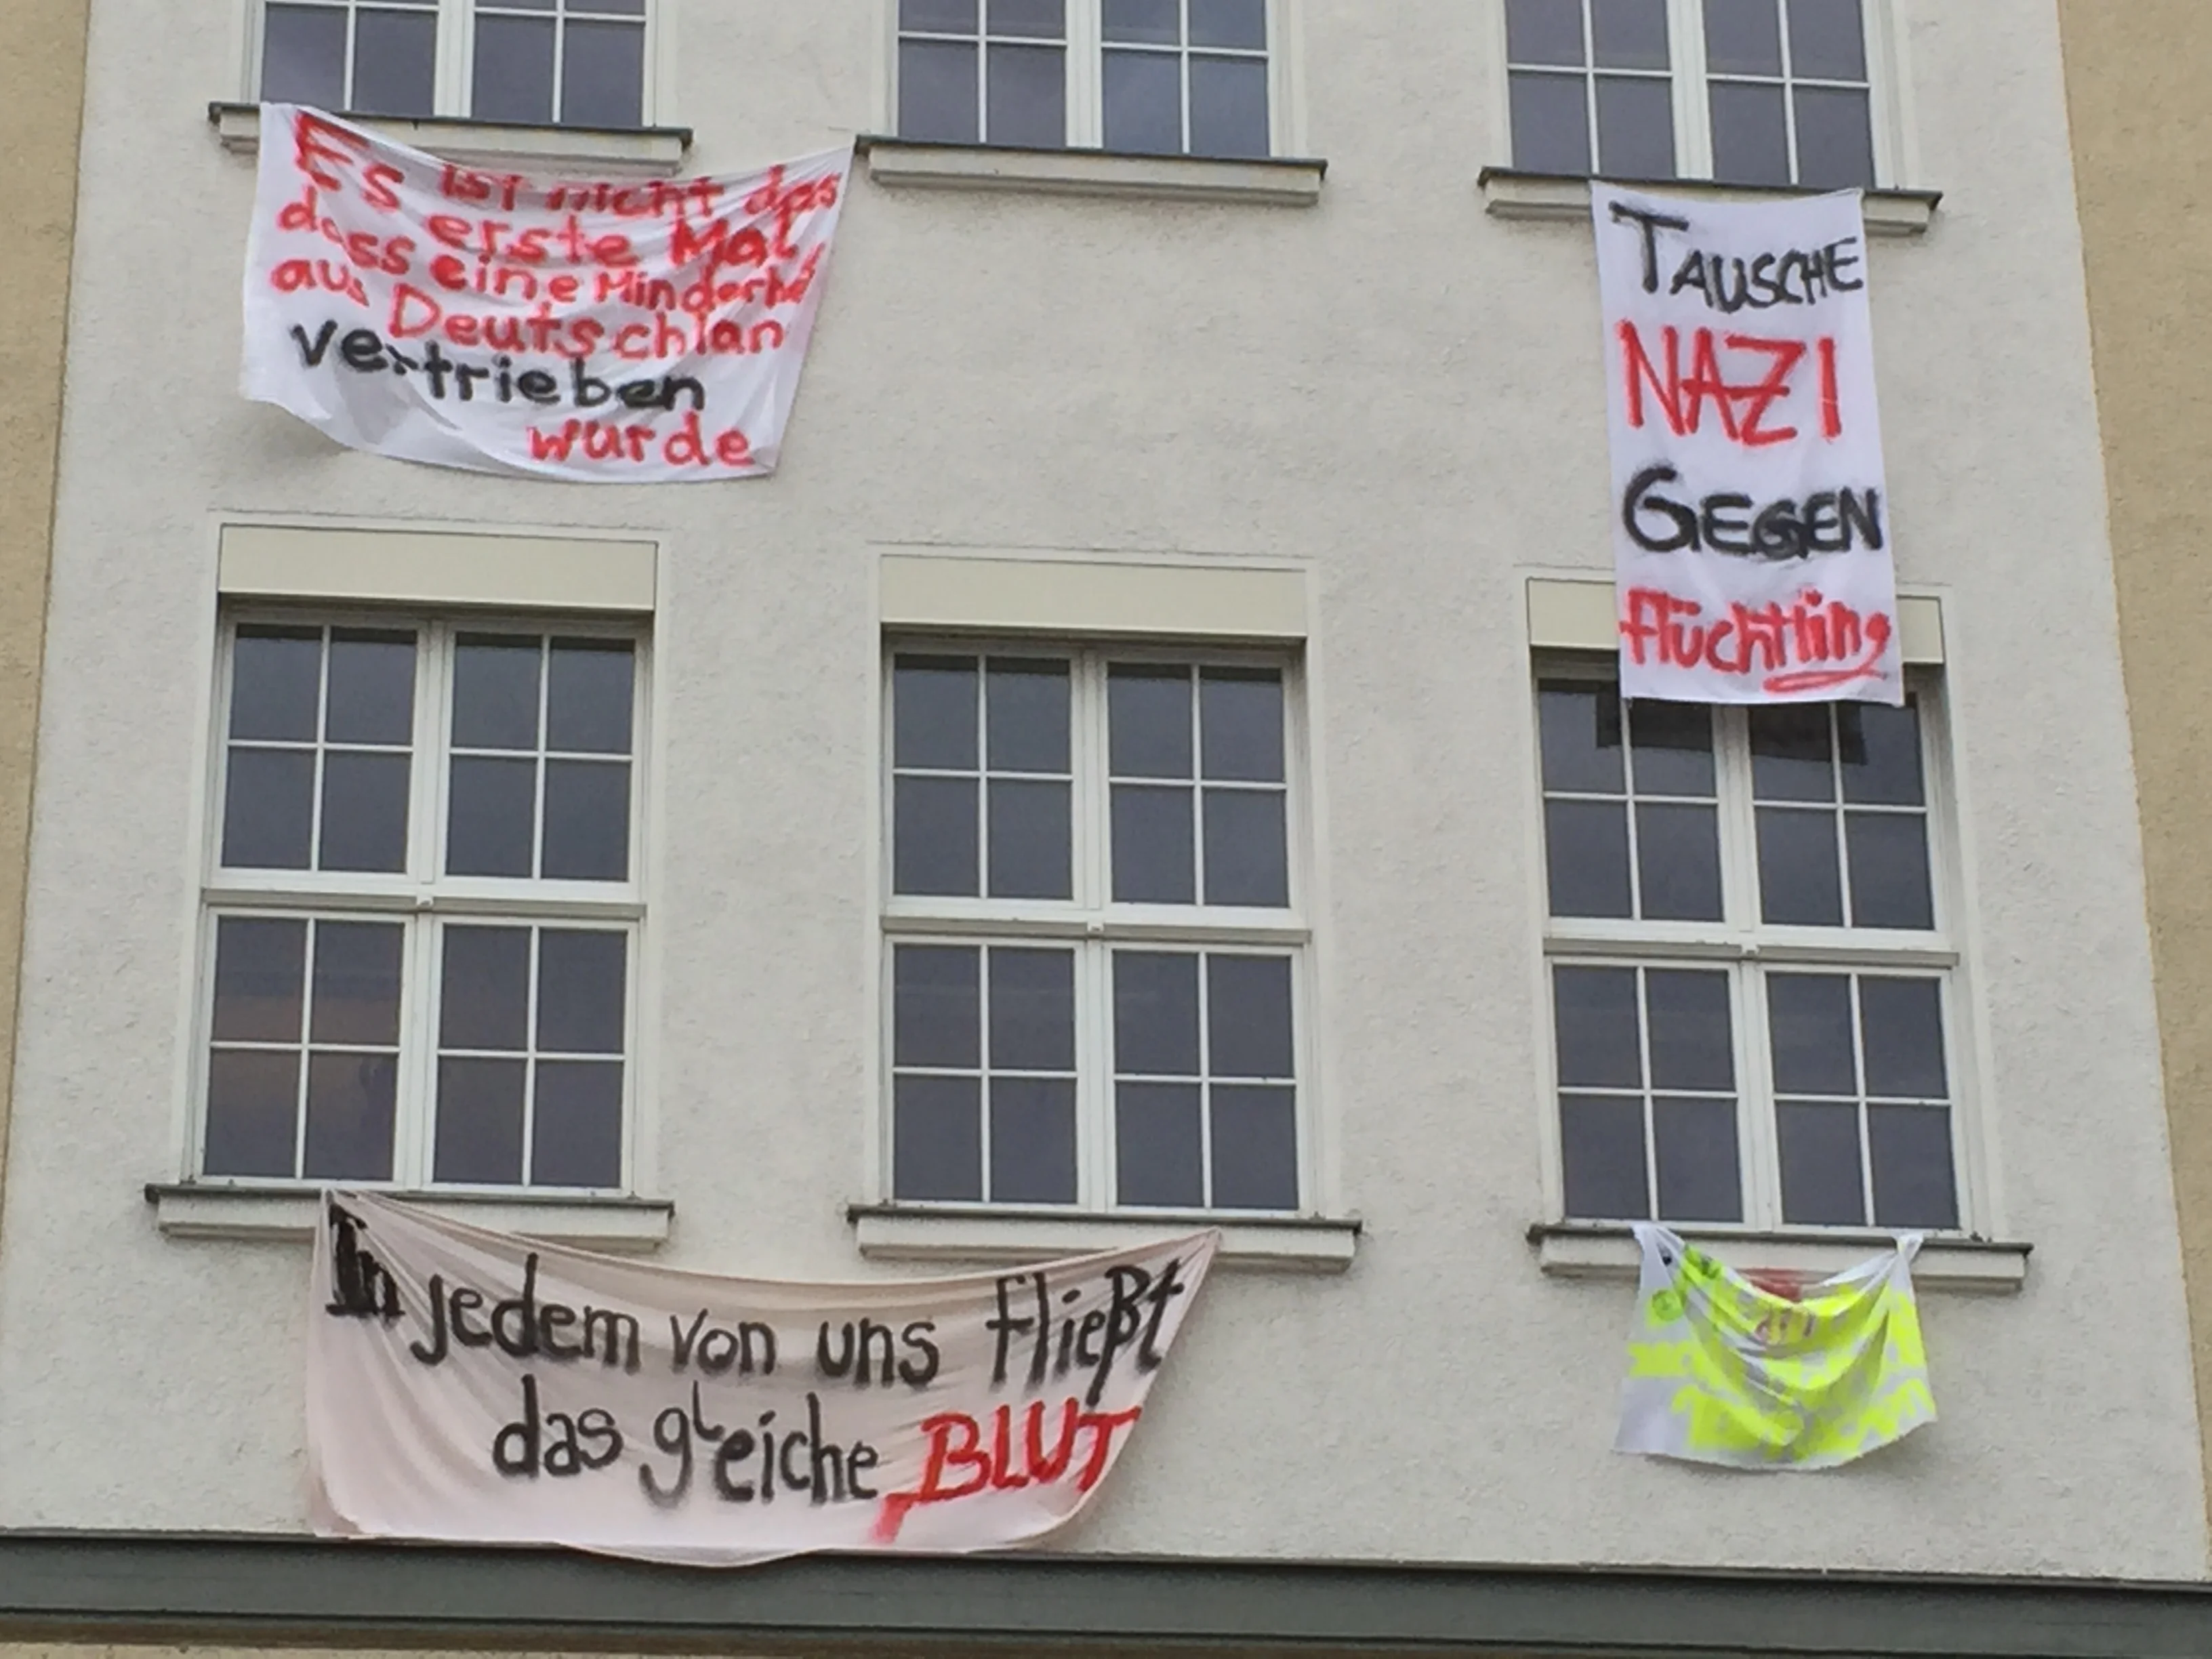 Es ist nicht das
erste Mal,
dass eine Minderhei
aus Deutschlan
vertrieben
wurde
TAUSCHE
NAZI
GEGEN
flüchtling
In jedem von uns fließt
das gleiche BLUT